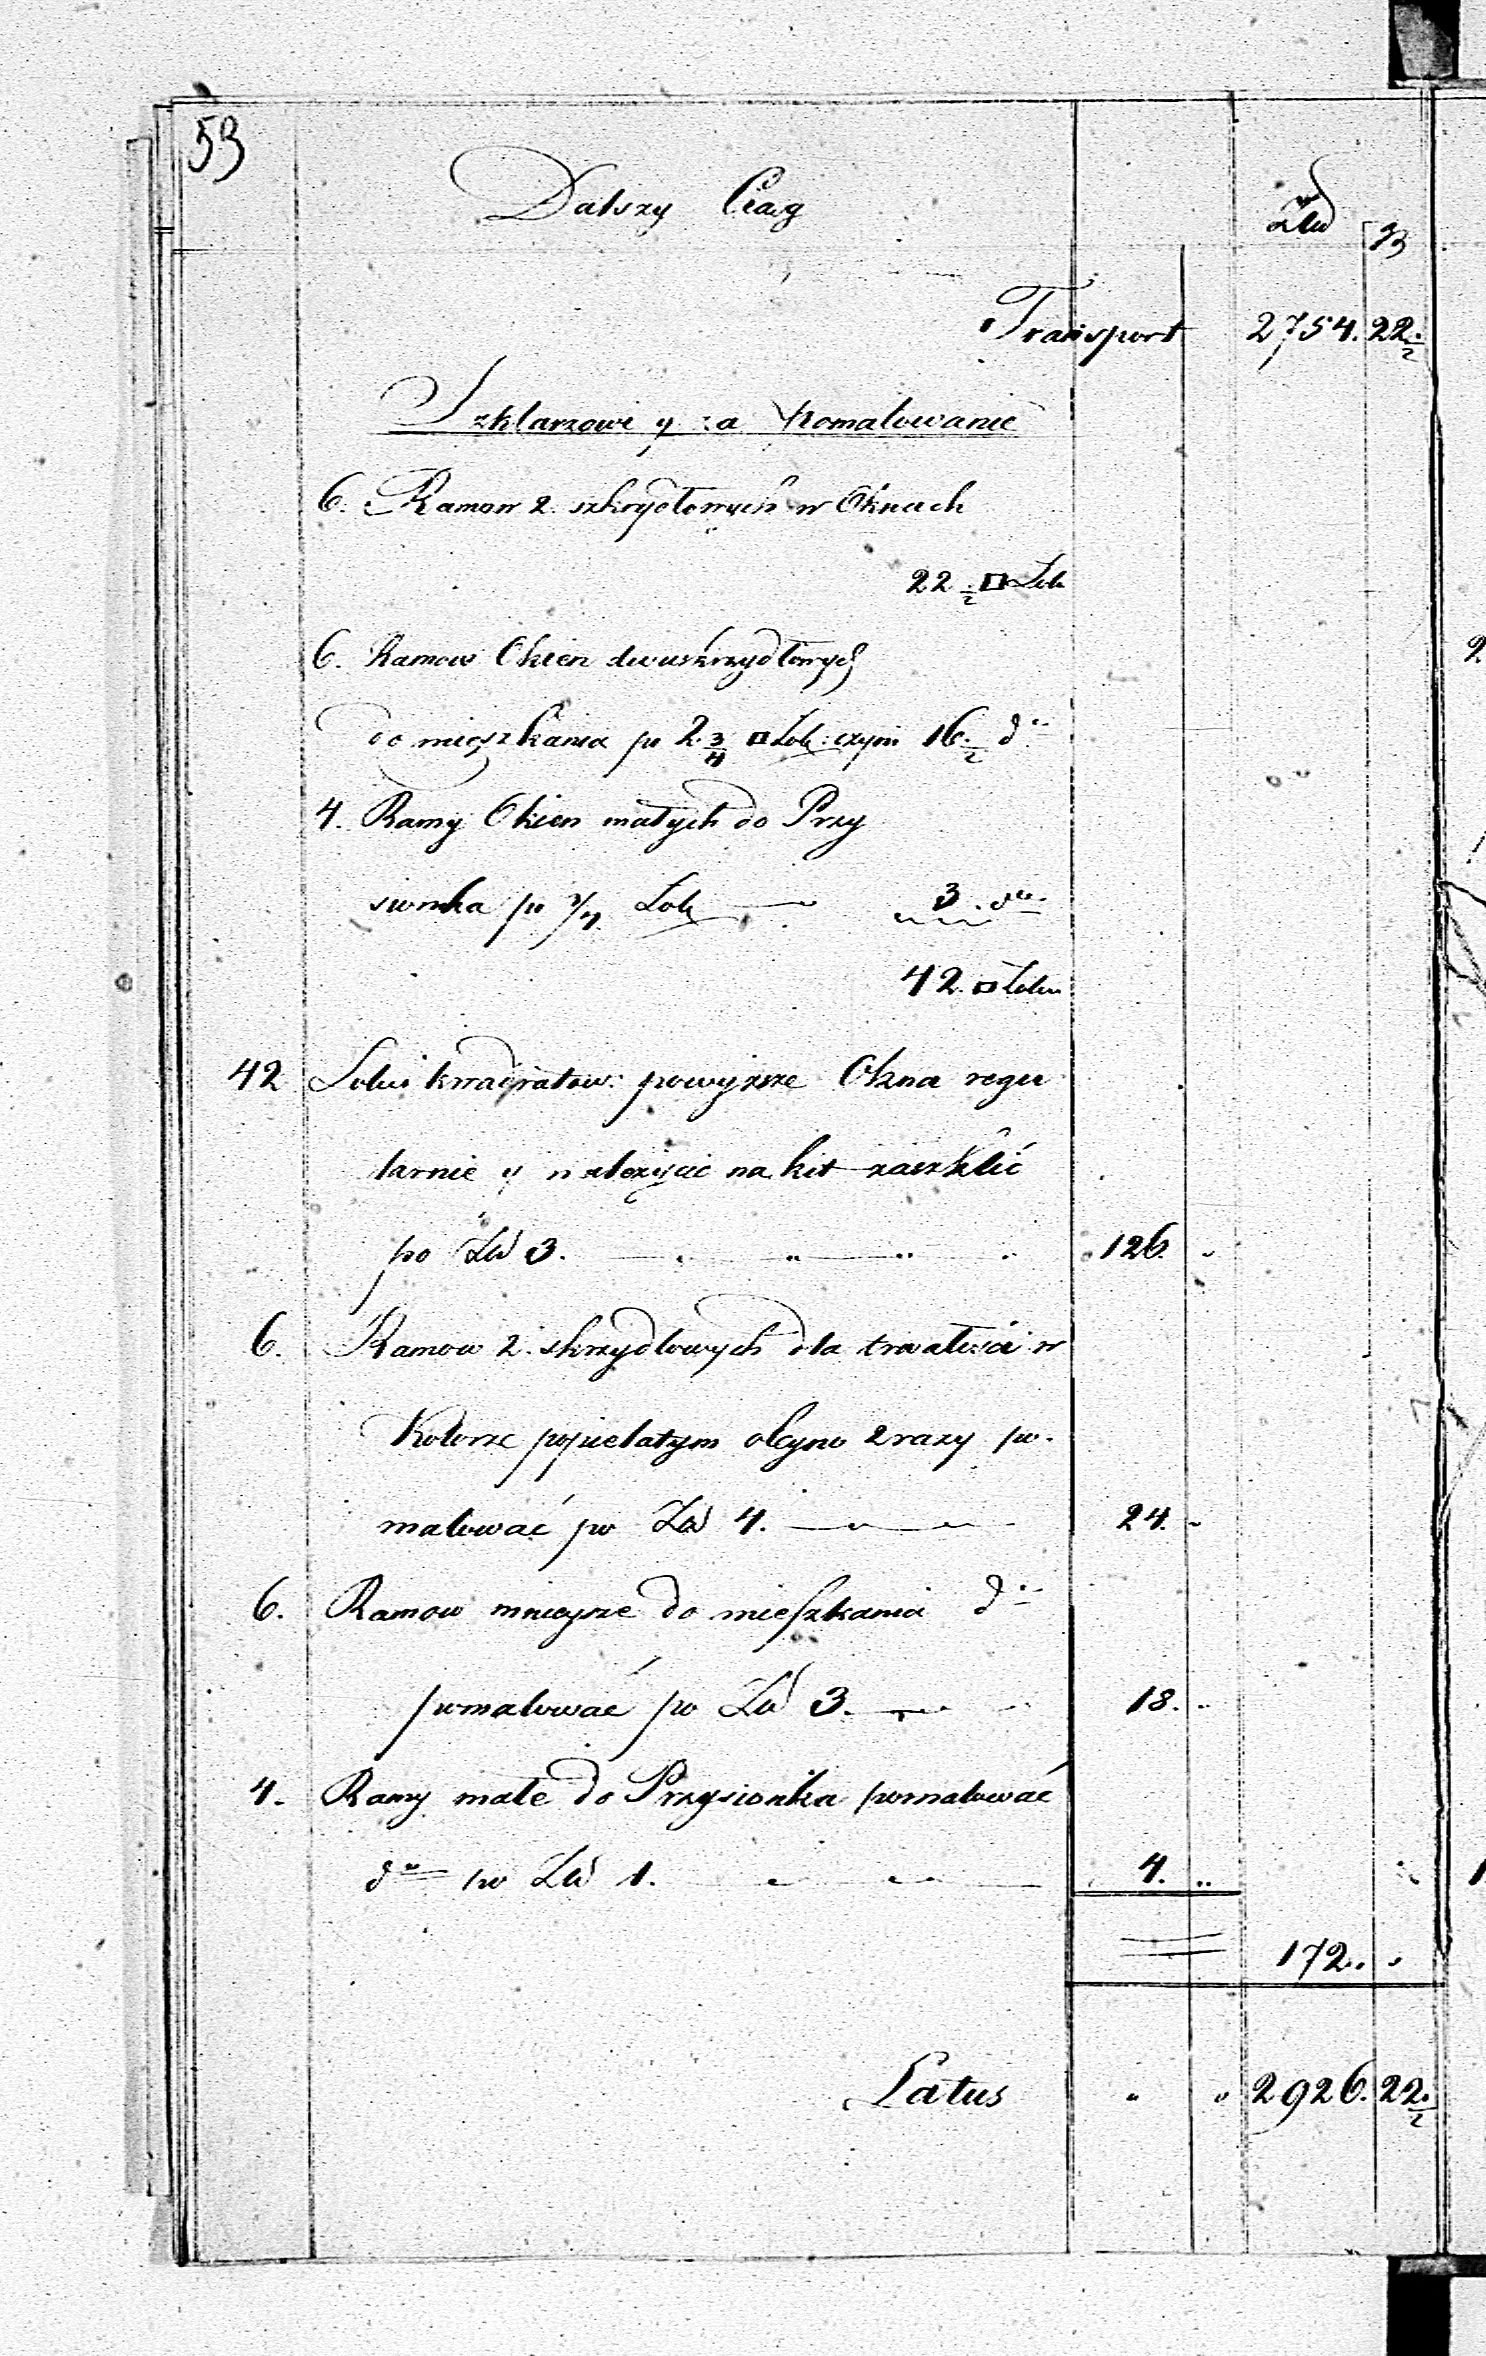 53
Dalszy Ciąg
Złł gr
Transport 2754. 22 ½
Szklarzowi y za Pomalowanie
6. Ramow 2. szkrydłowych w Oknach
22 ½ □ Łok
6. Ramow Okien dwuskrzydłowych
do mieszkania po 2 ¾ □ Łok: czyni 16 ½ d°
4. Ramy Okien małych do Przy
sionka po ¾ Łok 3. d°
42 □ Łokci
42 Łokci kwadratow: powyższe Okna regu
larnie y należycie na kit zaszklić
po Zł 3. 126.
6. Ramow 2. skrzydłowych dla trwałości w
Kolorze popielatym oleyno 2 razy po-
malować po Zł 4. 24.
6. Ramow mnieysze do mieszkania d°
pomalować po Zł 3. 18.
4. Ramy małe do Przysionka pomalować
d° po Zł 1. 4.
172.
Latus 2926. 22 ½